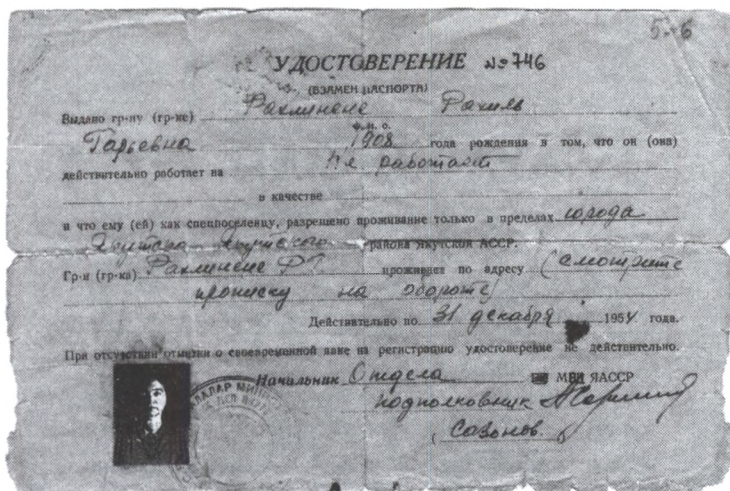 5-6
УДОСТОВЕРЕНИЕ №746
(ВЗАМЕН ПАСПОРТА)
Выдано гр-ну (гр-ке) Рахминене Рахиль
Ф. И. О.
Гарьевна 1908 года рождения в том, что он (она)
действительно работает на Не работает
в качестве
и что ему (ей) как спецпоселенцу, разрешено проживание только в пределах города
Якутска Якутского района Якутской АССР.
Гр-н (гр-ка) Рахминене Р Г проживает по адресу (смотрите
прописку на обороте)
Действительно по 31 декабря 1954 года.
При отсутствии отметки о своевременной явке на регистрацию удостоверение не действительно.
Начальник Отдела МВД ЯАССР
подполковник
(Сазонов.)